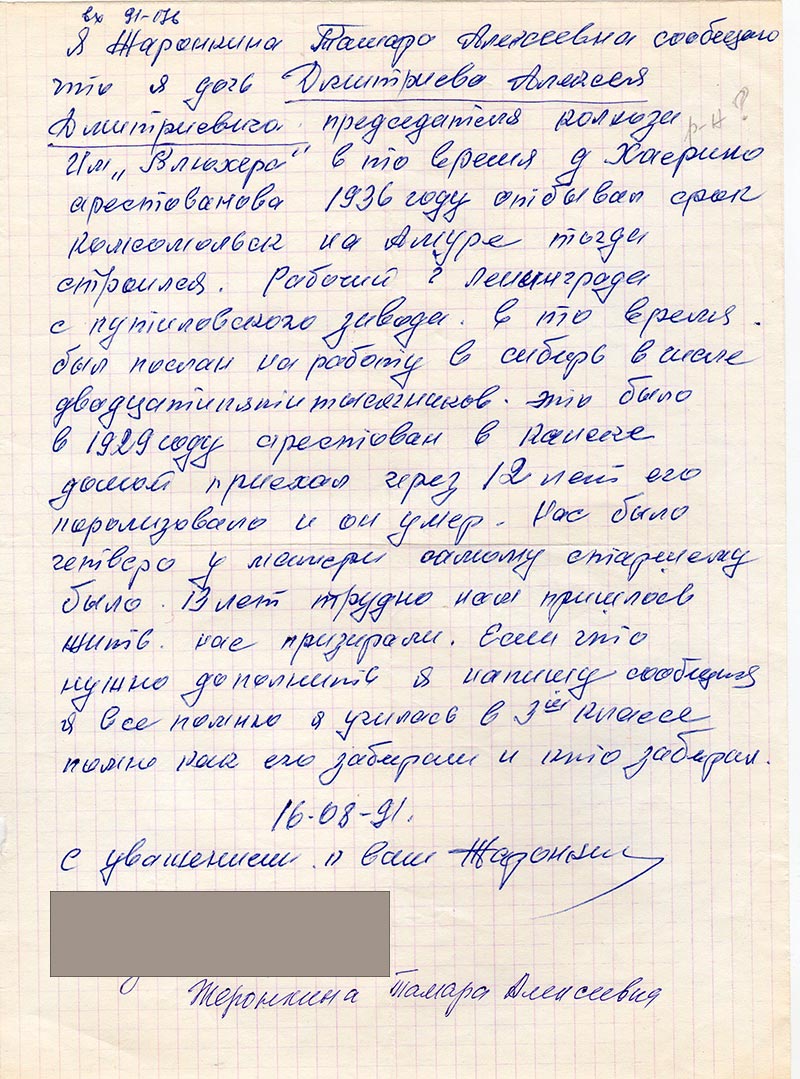 вх 91-076
Я Жаронкина Тамара Алексеевна сообщаю
что я дочь Дмитриева Алексея
Дмитриевича председателя колхоза
р-н?
Им „Блюхера" в то время д Хаерино
арестованова 1936 году отбывал срок
комсомольск на Амуре тогда
строился. Рабочий г Ленинграда
с путиловского завода. в то время.
был послан на работу в сибирь в числе
двадцатипятитысячников. это было
в 1929 году арестован в Канске
домой приехал через 12 лет его
порализовало и он умер. Нас было
четверо у матери самому старшему
было. 13 лет трудно нам пришлось
жить. нас призирали. Если что
нужно дополнить я напишу сообщия
я все помню я училась в 3ем классе
помню как его забирали и кто забирал.
16-08-91.
с уважением к вам Жаронкин
Жаронкина Тамара Алексеевна